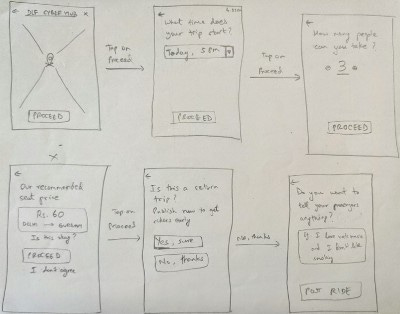 DLF CYBER HUB X
PROCEED
Tap on
Proceed
What time does
your trip start?
Today, 5 pm
PROCEED
Tap on
Proceed
How many people
can you take?
3
PROCEED
Our recommended
seat price
Rs. 60
Is this okay?
PROCEED
I don't agree
Tap on
Proceed
Is this a return
trip?
Publish now to get
riders early
Yes, sure
No, thanks
No, thanks
Do you want to
tell your passengers
anything?
POST RIDE